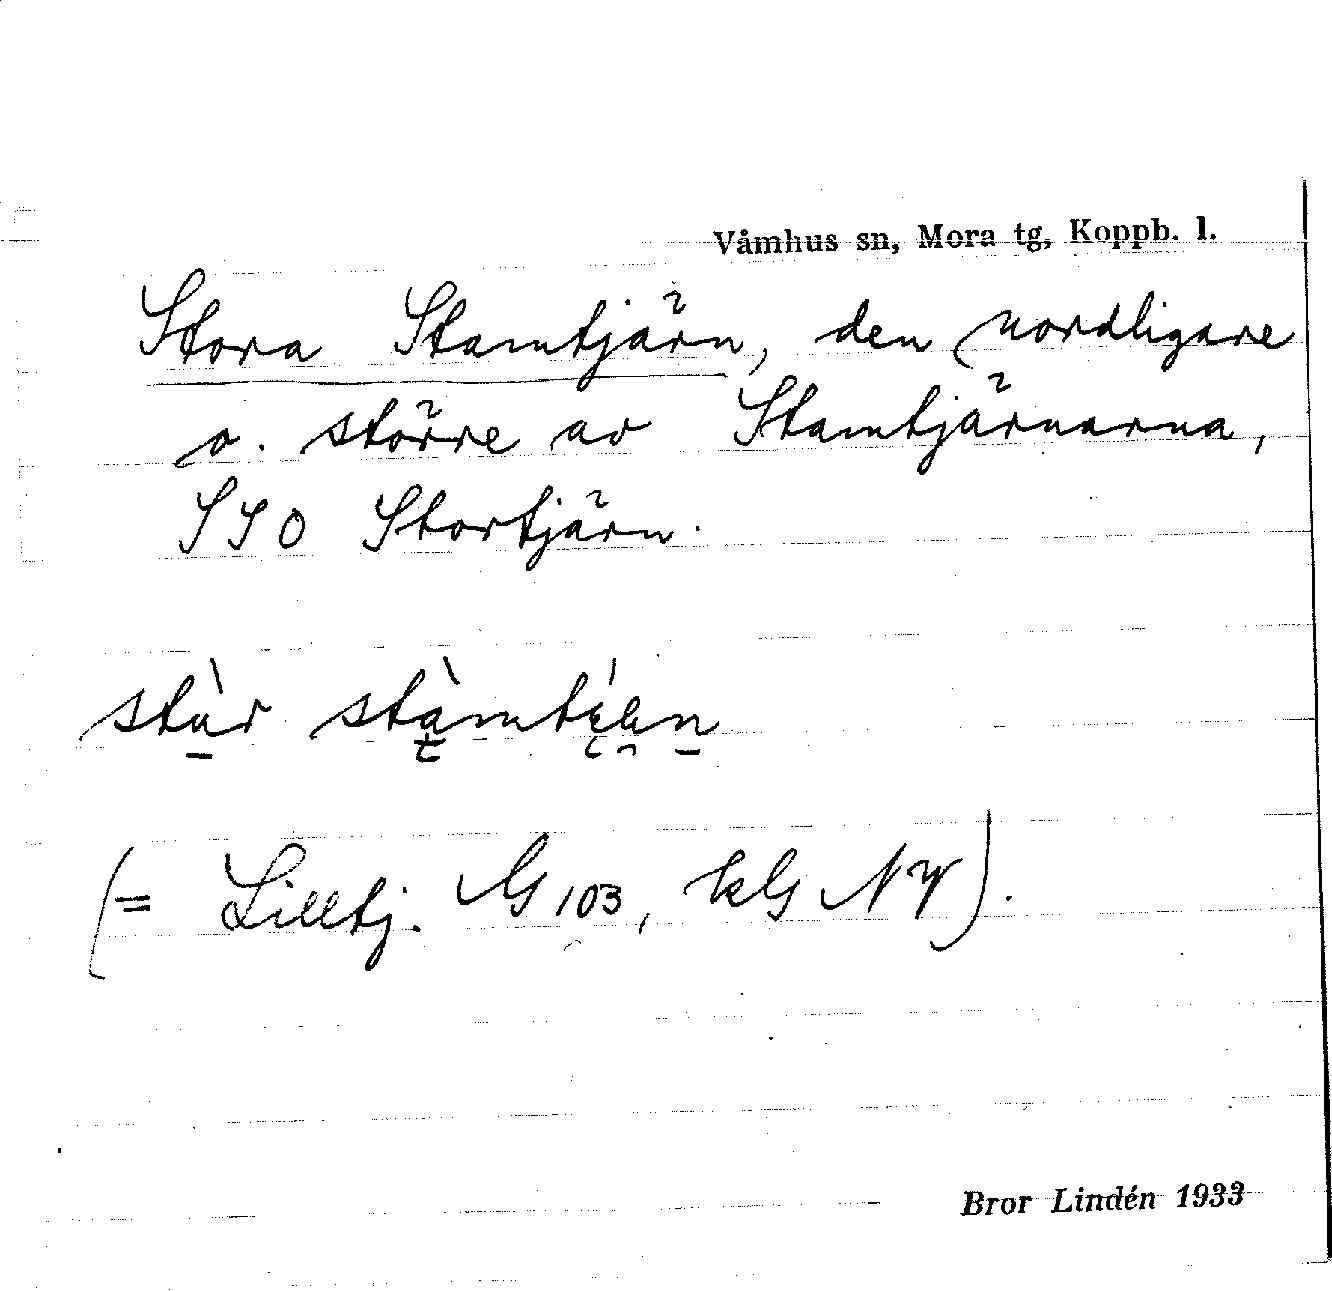 Våmhus sn, Mora tg, Koppb. l.
Stora Stamtjärn, den nordligare
o. större av Stamtjärnarna,
SSO Stortjärn.
stùr stàmt
(= Lilltj. G 103, kG NV).
Bror Lindén 1933